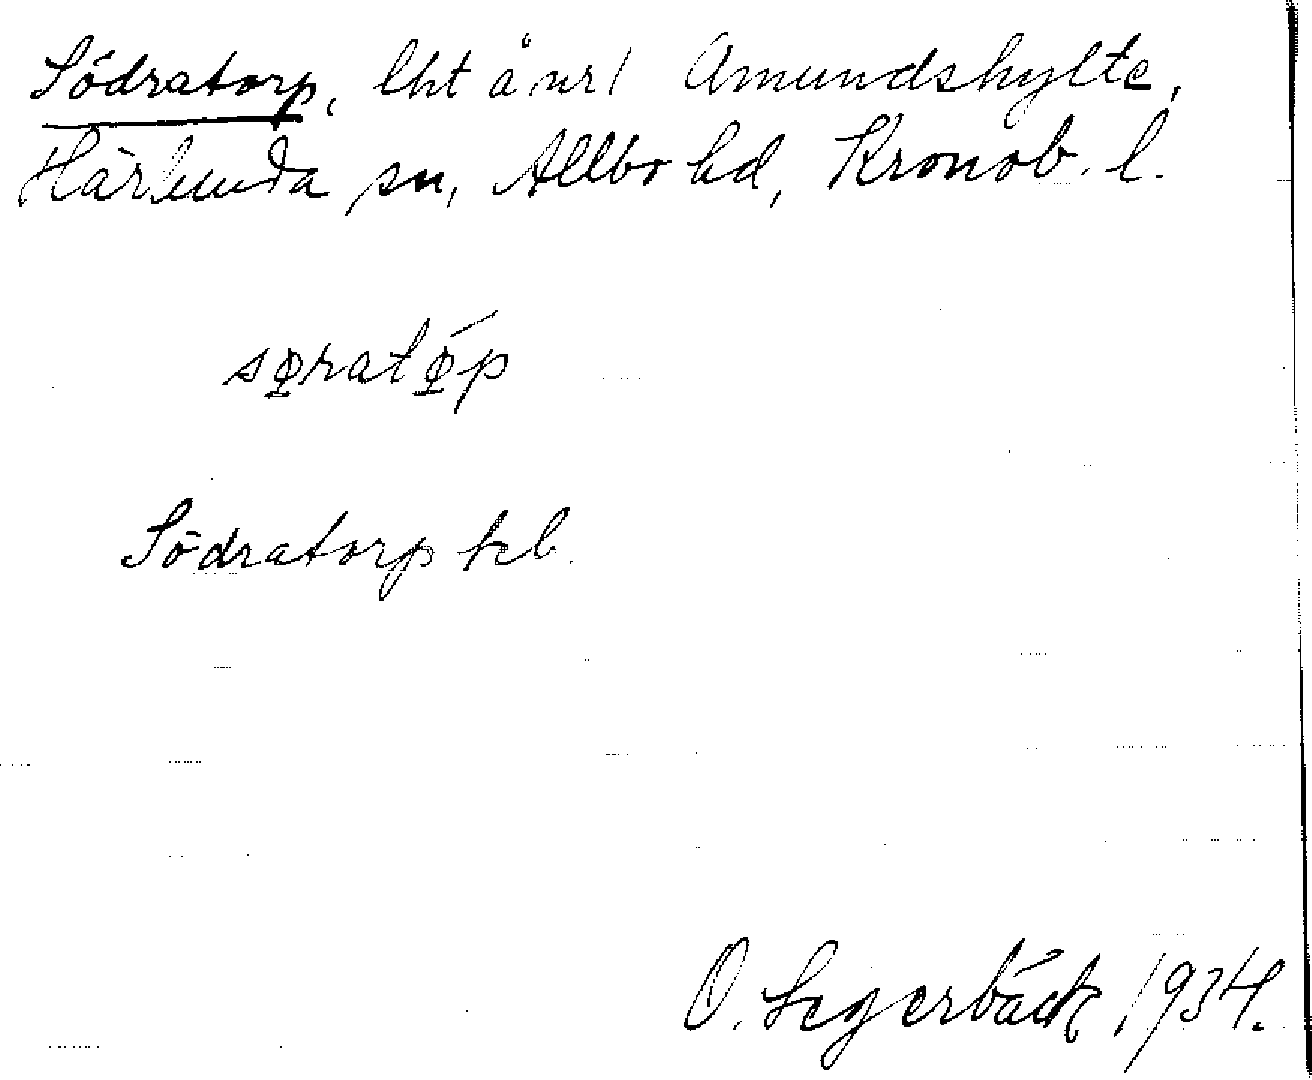 Södratorp, lht å nr 1 Amundshylte,
Härlunda sn, Allbo hd, Kronob. l.
søratǿp
Södratorp kb.
O. Segerbäck 1934.